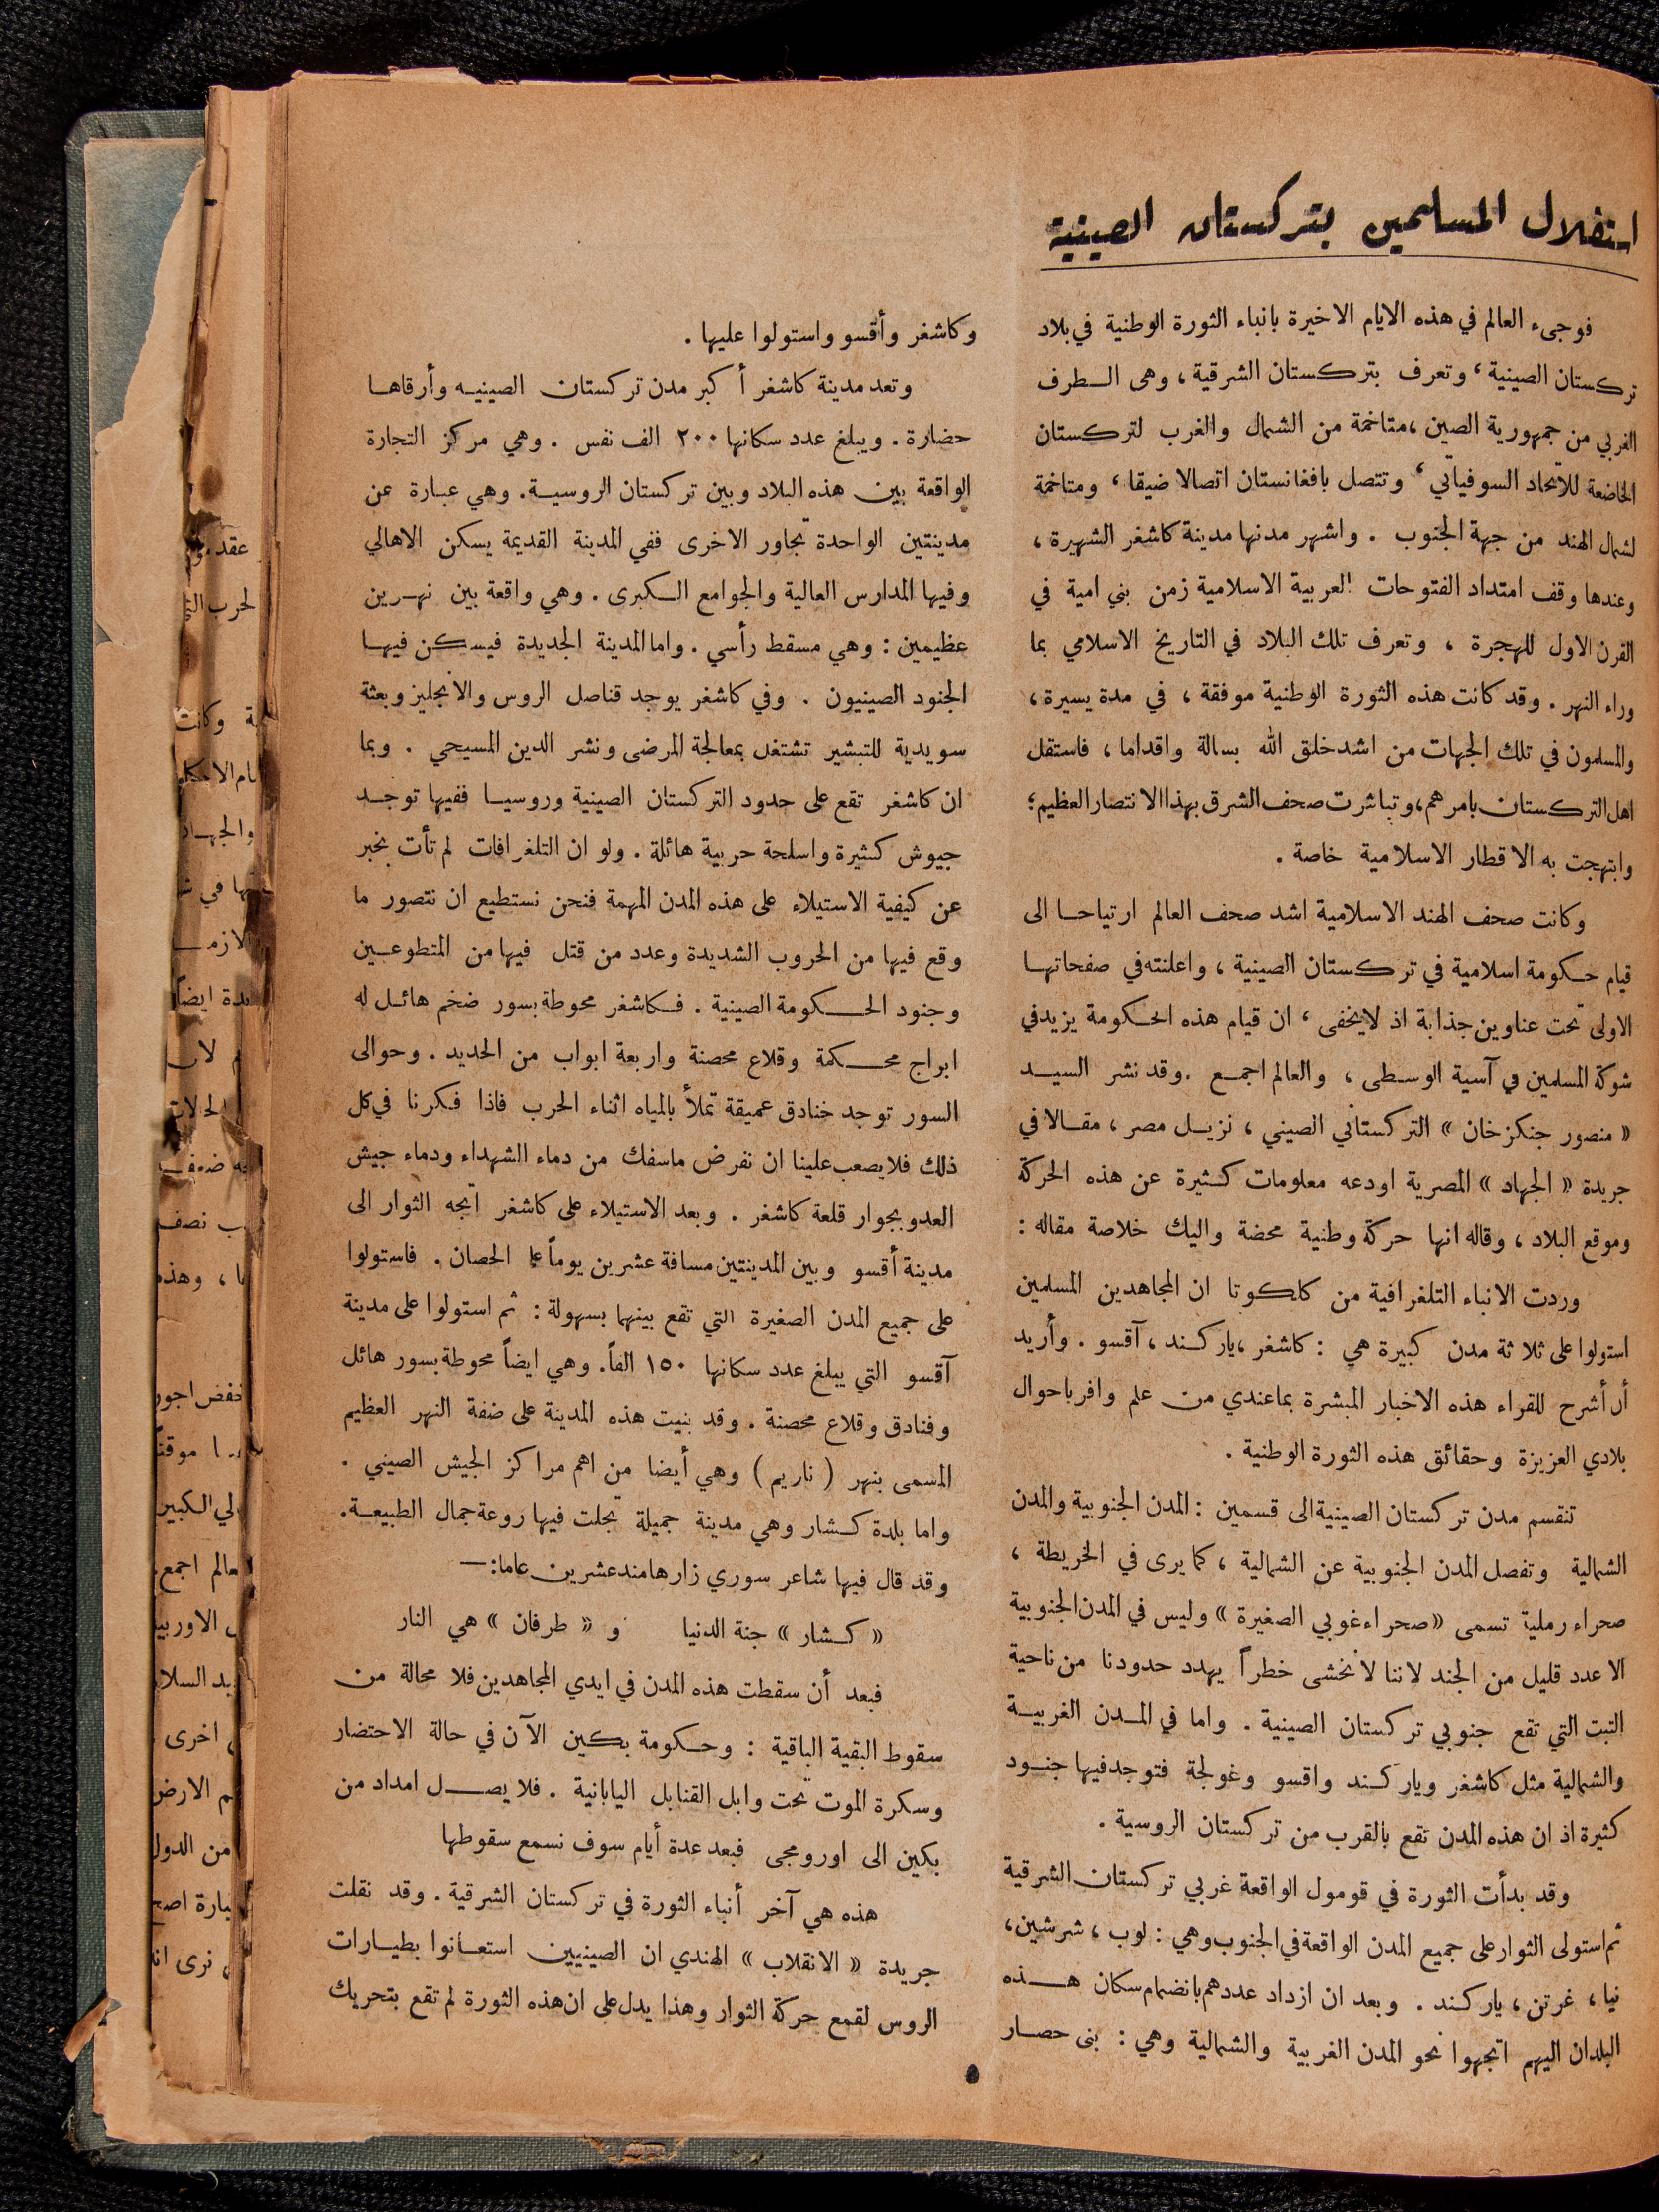 استقلال المسلمين بتركستان الصينية
فوجىء العالم في هذه الايام الاخيرة بانباء الثورة الوطنية في بلاد
تركستان الصينية ، وتعرف بتركستان الشرقية ، وهى الطرف
الغربي من جمهورية الصين ، متاخمة من الشمال والغرب لتركستان
الخاضعة للاتحاد السوفياتي ، وتتصل بافغانستان اتصالا ضيقا ، ومتاخمة
لشمال الهند من جهة الجنوب . واشهر مدنها مدينة كاشغر الشهيرة ،
وعندها وقف امتداد الفتوحات العربية الاسلامية زمن بني امية في
القرن الاول للهجرة ، وتعرف تلك البلاد في التاريخ الاسلامي بما
وراء النهر . وقد كانت هذه الثورة الوطنية موفقة ، في مدة يسيرة ،
والمسلمون في تلك الجهات من اشد خلق الله بسالة واقداما ، فاستقل
اهل التركستان بامرهم ، وتباشرت صحف الشرق بهذا الانتصار العظيم ؛
وابتهجت به الاقطار الاسلامية خاصة .
وكانت صحف الهند الاسلامية اشد صحف العالم ارتياحا الى
قيام حكومة اسلامية في تركستان الصينية ، واعلنته في صفحاتها
الاولى تحت عناوين جذابة اذ لا يخفى ، ان قيام هذه الحكومة يزيد في
شوكة المسلمين في آسية الوسطى ، والعالم اجمع . وقد نشر السيد
« منصور جنكزخان » التركستاني الصيني ، نزيل مصر ، مقالا في
جريدة « الجهاد » المصرية اودعه معلومات كثيرة عن هذه الحركة
وموقع البلاد ، وقاله انها حركة وطنية محضة واليك خلاصة مقاله :
وردت الانباء التلغرافية من كلكوتا ان المجاهدين المسلمين
استولوا على ثلاثة مدن كبيرة هي : كاشغر ، ياركند ، آقسو . وأريد
أن أشرح للقراء هذه الاخبار المبشرة بما عندي من علم وافر باحوال
بلادي العزيزة وحقائق هذه الثورة الوطنية .
تنقسم مدن تركستان الصينية الى قسمين : المدن الجنوبية والمدن
الشمالية وتفصل المدن الجنوبية عن الشمالية ، كما يرى في الخريطة ،
صحراء رملية تسمى « صحراء غوبي الصغيرة » وليس في المدن الجنوبية
الا عدد قليل من الجند لاننا لا نخشى خطراً يهدد حدودنا من ناحية
التبت التي تقع جنوبي تركستان الصينية . واما في المدن الغربية
والشمالية مثل كاشغر وياركند واقسو وغولجة فتوجد فيها جنود
كثيرة اذ ان هذه المدن تقع بالقرب من تركستان الروسية .
وقد بدأت الثورة في قومول الواقعة غربي تركستان الشرقية
ثم استولى الثوار على جميع المدن الواقعة في الجنوب وهي : لوب ، شرشين ،
نيا ، غرتن ، ياركند . وبعد ان ازداد عددهم بانضمام سكان هذه
البلدان اليهم اتجهوا نحو المدن الغربية والشمالية وهي : بنى حصار
وكاشغر وأقسو واستولوا عليها .
وتعد مدينة كاشغر أكبر مدن تركستان الصينيه وأرقاها
حضارة . ويبلغ عدد سكانها ٢٠٠ الف نفس . وهي مركز التجارة
الواقعة بين هذه البلاد وبين تركستان الروسية . وهي عبارة عن
مدينتين الواحدة تجاور الاخرى ففي المدينة القديمة يسكن الاهالي
وفيها المدارس العالية والجوامع الكبرى . وهي واقعة بين نهرين
عظيمين : وهي مسقط رأسي . واما المدينة الجديدة فيسكن فيها
الجنود الصينيون . وفي كاشغر يوجد قناصل الروس والانجليز وبعثة
سويدية للتبشير تشتغل بمعالجة المرضى ونشر الدين المسيحي . وبما
ان كاشغر تقع على حدود التركستان الصينية وروسيا ففيها توجد
جيوش كثيرة واسلحة حربية هائلة . ولو ان التلغرافات لم تأت بخبر
عن كيفية الاستيلاء على هذه المدن المهمة فنحن نستطيع ان نتصور ما
وقع فيها من الحروب الشديدة وعدد من قتل فيها من المتطوعين
وجنود الحكومة الصينية . فكاشغر محوطة بسور ضخم هائل له
ابراج محكمة وقلاع محصنة واربعة ابواب من الحديد . وحوالى
السور توجد خنادق عميقة تملأ بالمياه اثناء الحرب فاذا فكرنا في كل
ذلك فلا يصعب علينا ان نفرض ماسفك من دماء الشهداء ودماء جيش
العدو بجوار قلعة كاشغر . وبعد الاستيلاء على كاشغر اتجه الثوار الى
مدينة أقسو وبين المدينتين مسافة عشرين يوماً على الحصان . فاستولوا
على جميع المدن الصغيرة التي تقع بينهما بسهولة : ثم استولوا على مدينة
آقسو التي يبلغ عدد سكانها ١٥٠ الفاً . وهي ايضاً محوطة بسور هائل
وفنادق وقلاع محصنة . وقد بنيت هذه المدينة على ضفة النهر العظيم
المسمى بنهر ( ناريم ) وهي أيضا من اهم مراكز الجيش الصيني .
واما بلدة كشار وهي مدينة جميلة تجلت فيها روعة جمال الطبيعة .
وقد قال فيها شاعر سوري زارها منذ عشرين عاما : —
« كشار » جنة الدنيا و « طرفان » هي النار
فبعد أن سقطت هذه المدن في ايدي المجاهدين فلا محالة من
سقوط البقية الباقية : وحكومة بكين الآن في حالة الاحتضار
وسكرة الموت تحت وابل القنابل اليابانية . فلا يصل امداد من
بكين الى اورومجى فبعد عدة أيام سوف نسمع سقوطها
هذه هي آخر أنباء الثورة في تركستان الشرقية . وقد نقلت
جريدة « الانقلاب » الهندي ان الصينيين استعانوا بطيارات
الروس لقمع حركة الثوار وهذا يدل على ان هذه الثورة لم تقع بتحريك